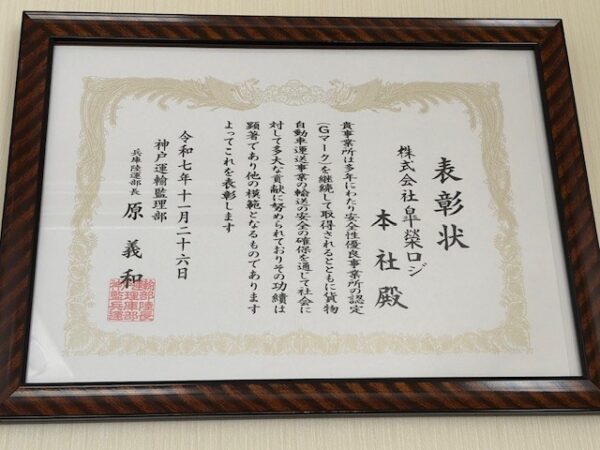 表彰状
株式会社皐榮ロジ
本社殿
貴事業所は多年にわたり安全性優良事業所の認定
(Gマーク)を継続して取得されるとともに貨物
自動車運送事業の輸送の安全の確保を通じて社会に
対して多大な貢献に努められておりその功績は
顕著であり他の模範となるものであります
よってこれを表彰します
令和七年十一月二十六日
神戸運輸監理部
兵庫陸運部長
原義和